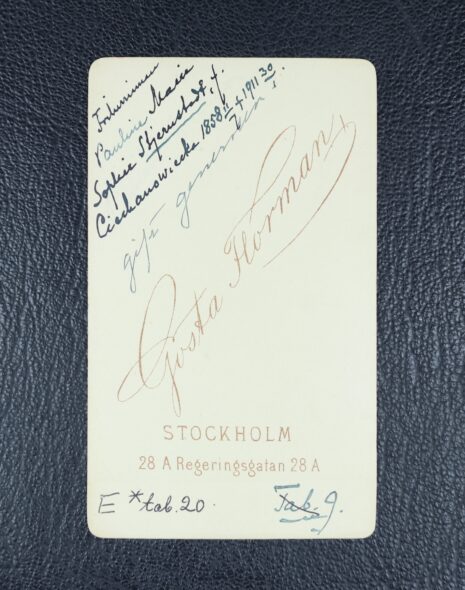 Friherrinnan
Pauline Marie
Sophie Stjernstedt, f.
Ciechanowiecka 1858 + 1911 30/1.
gift generalen
Gösta Florman
STOCKHOLM
28 A Regeringsgatan 28 A
E * tab. 20.
Tab. 9.